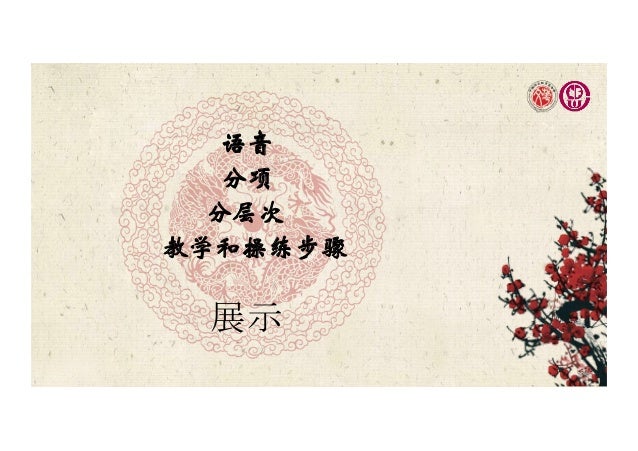 语音
分项
分层次
教学和操练步骤
展示